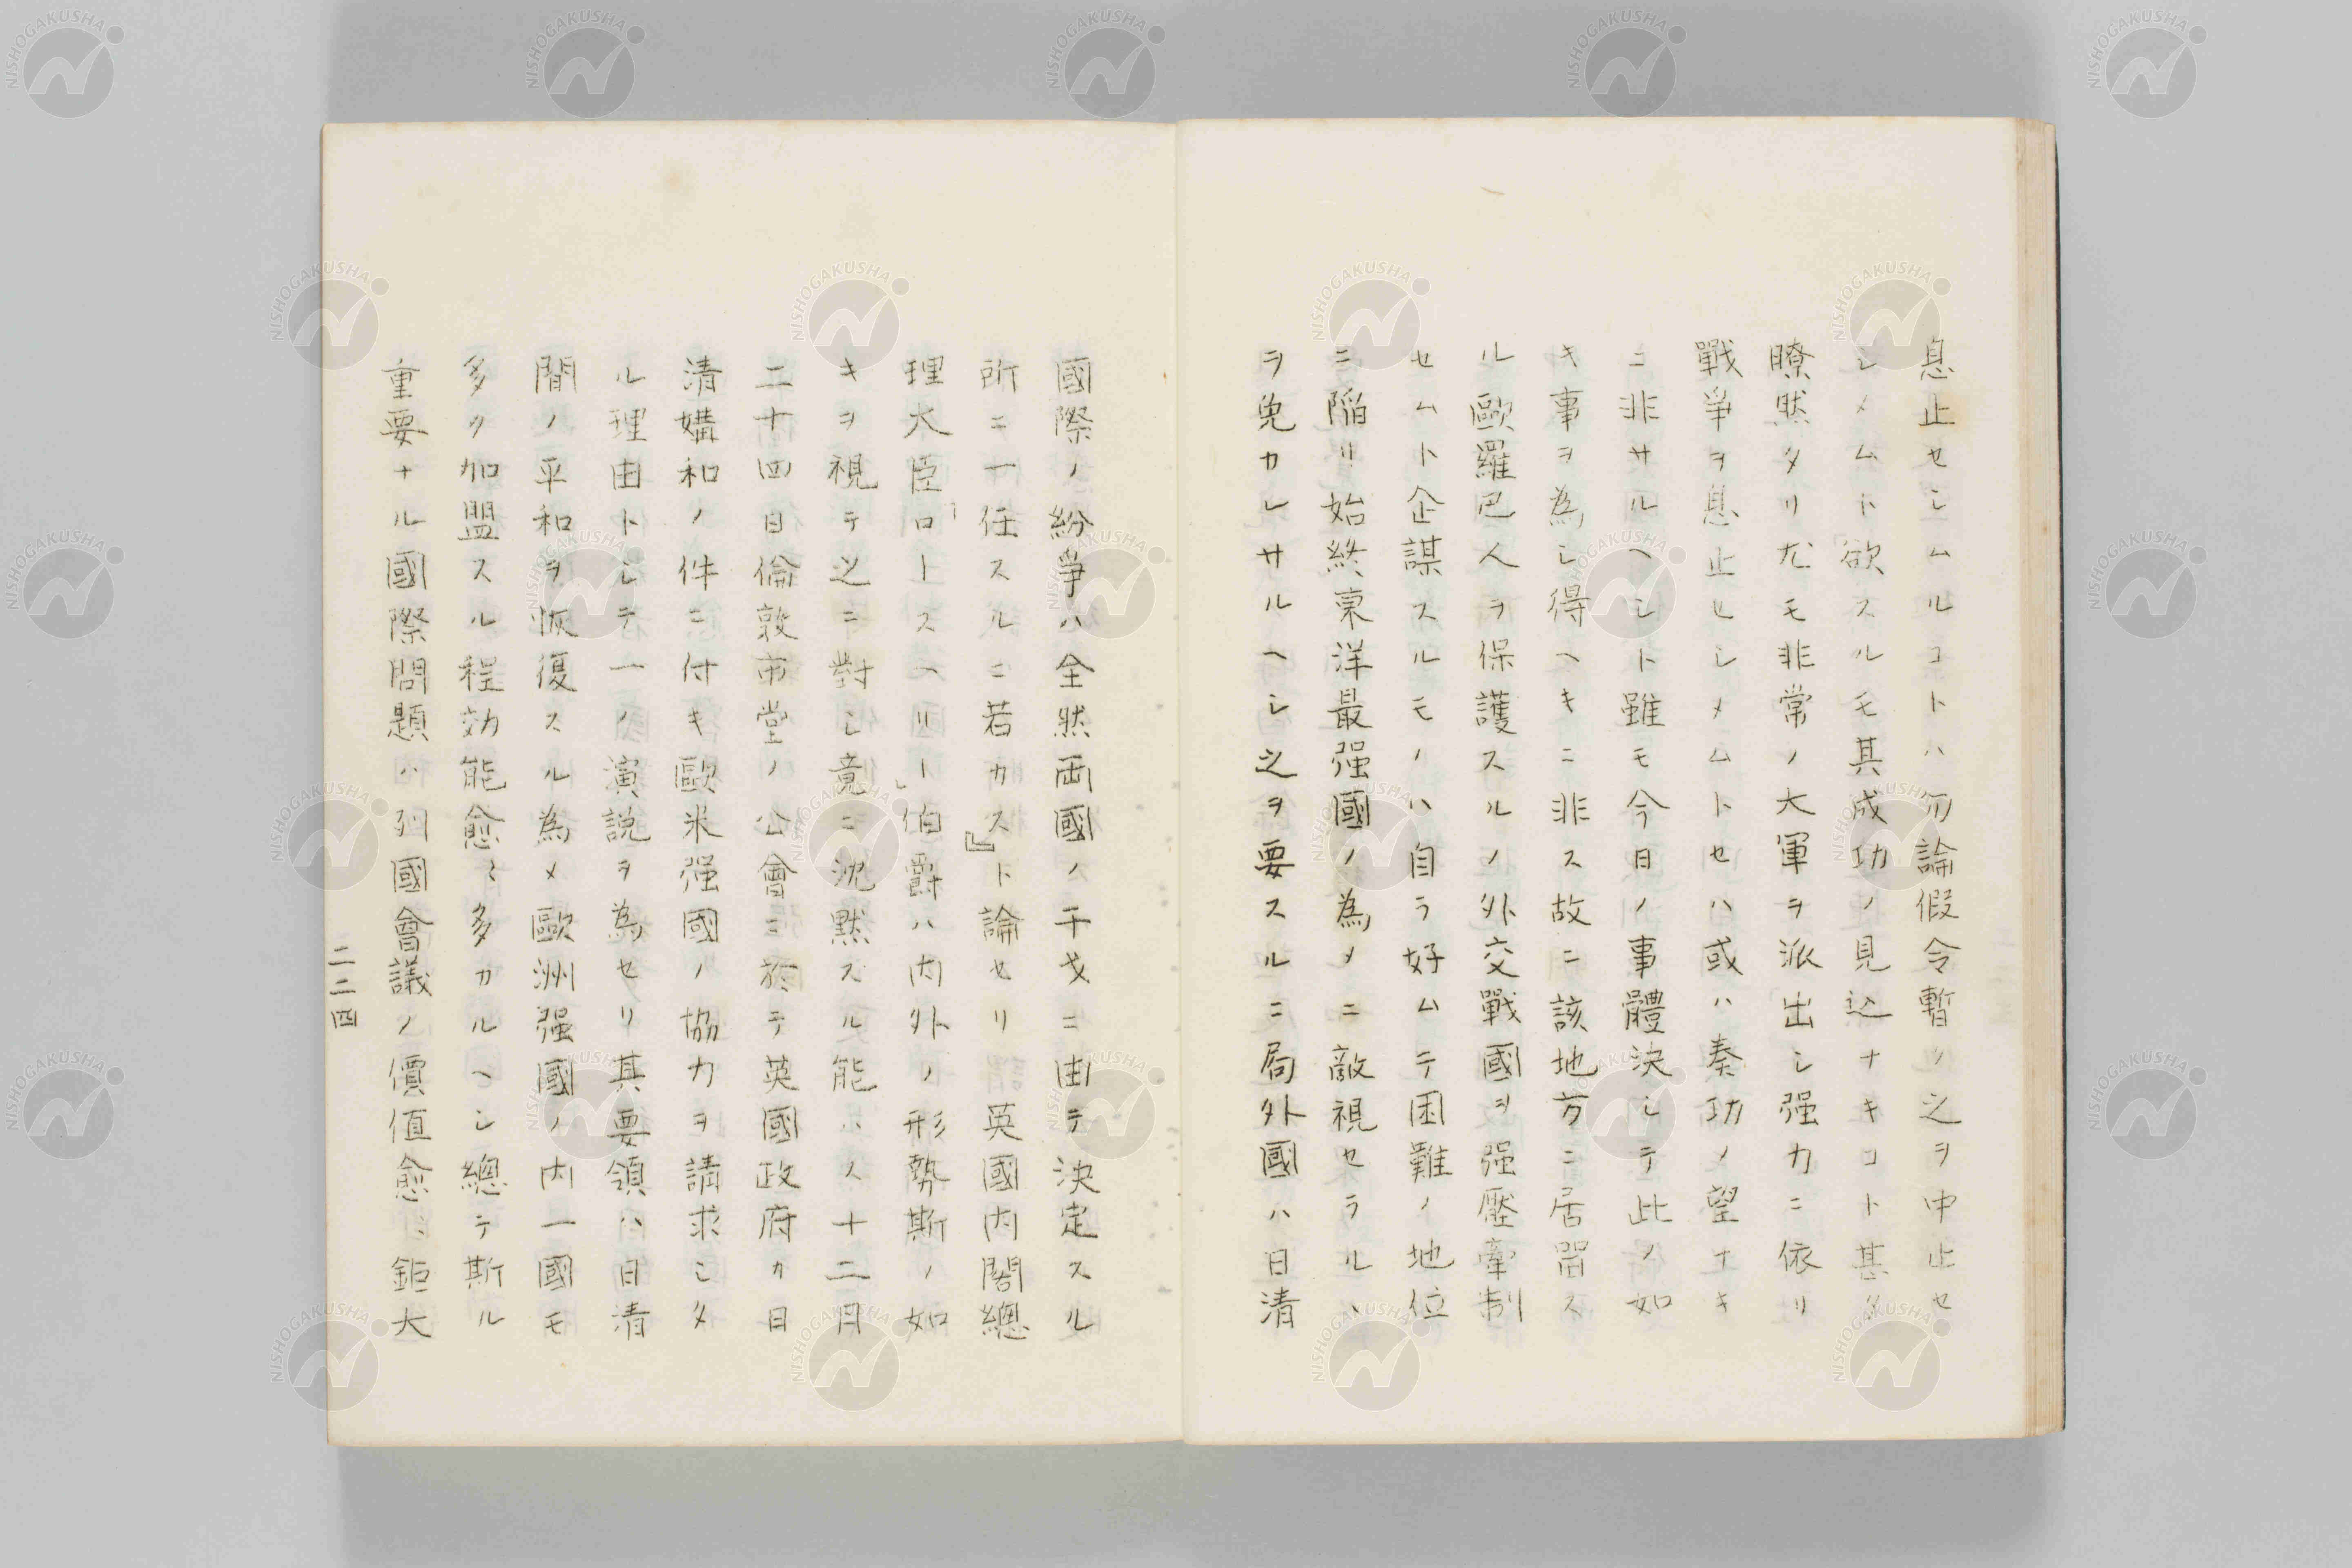 息止セシムルコトハ勿論假令暫ク之ヲ中止セ
シメムト欲スルモ其成功ノ見込ナキコト甚タ
瞭然タリ尤モ非常ノ大軍ヲ派出シ强力ニ依リ
戰爭ヲ息止セシメムトセハ或ハ奏功ノ望ナキ
ニ非サルヘシト雖モ今日ノ事體決シテ此ノ如
キ事ヲ為シ得ヘキニ非ス故ニ該地方ニ居畱ス
ル歐羅巴人ヲ保護スルノ外交戰國ヲ强壓牽制
セムト企謀スルモノハ自ラ好ムテ困難ノ地位
ニ陥リ始終東洋最强國ノ為メニ敵視セラルヽ
ヲ免カレサルヘシ之ヲ要スルニ局外國ハ日清
國際ノ紛爭ハ全然両國ノ干戈ニ由テ決定スル
所ニ一任スルニ若カス』ト論セリ 英國内閣總
理大臣「ロースヘリー」伯爵ハ内外ノ形勢斯ノ如
キヲ視テ之ニ對シ竟ニ沈黙スル能ハス十二月
二十四日倫敦市堂ノ公會ニ於テ英國政府カ日
清媾和ノ件ニ付キ歐米强國ノ協力ヲ請求シタ
ル理由トシテ一ノ演説ヲ為セリ其要領ハ日清
間ノ平和ヲ恢復スル為メ歐洲强國ノ内一國モ
多ク加盟スル程効能愈〻多カルヘシ總テ斯ル
重要ナル國際問題ハ列國會議ノ價值愈〻鉅大
二二四
NISHOGAKUSHA